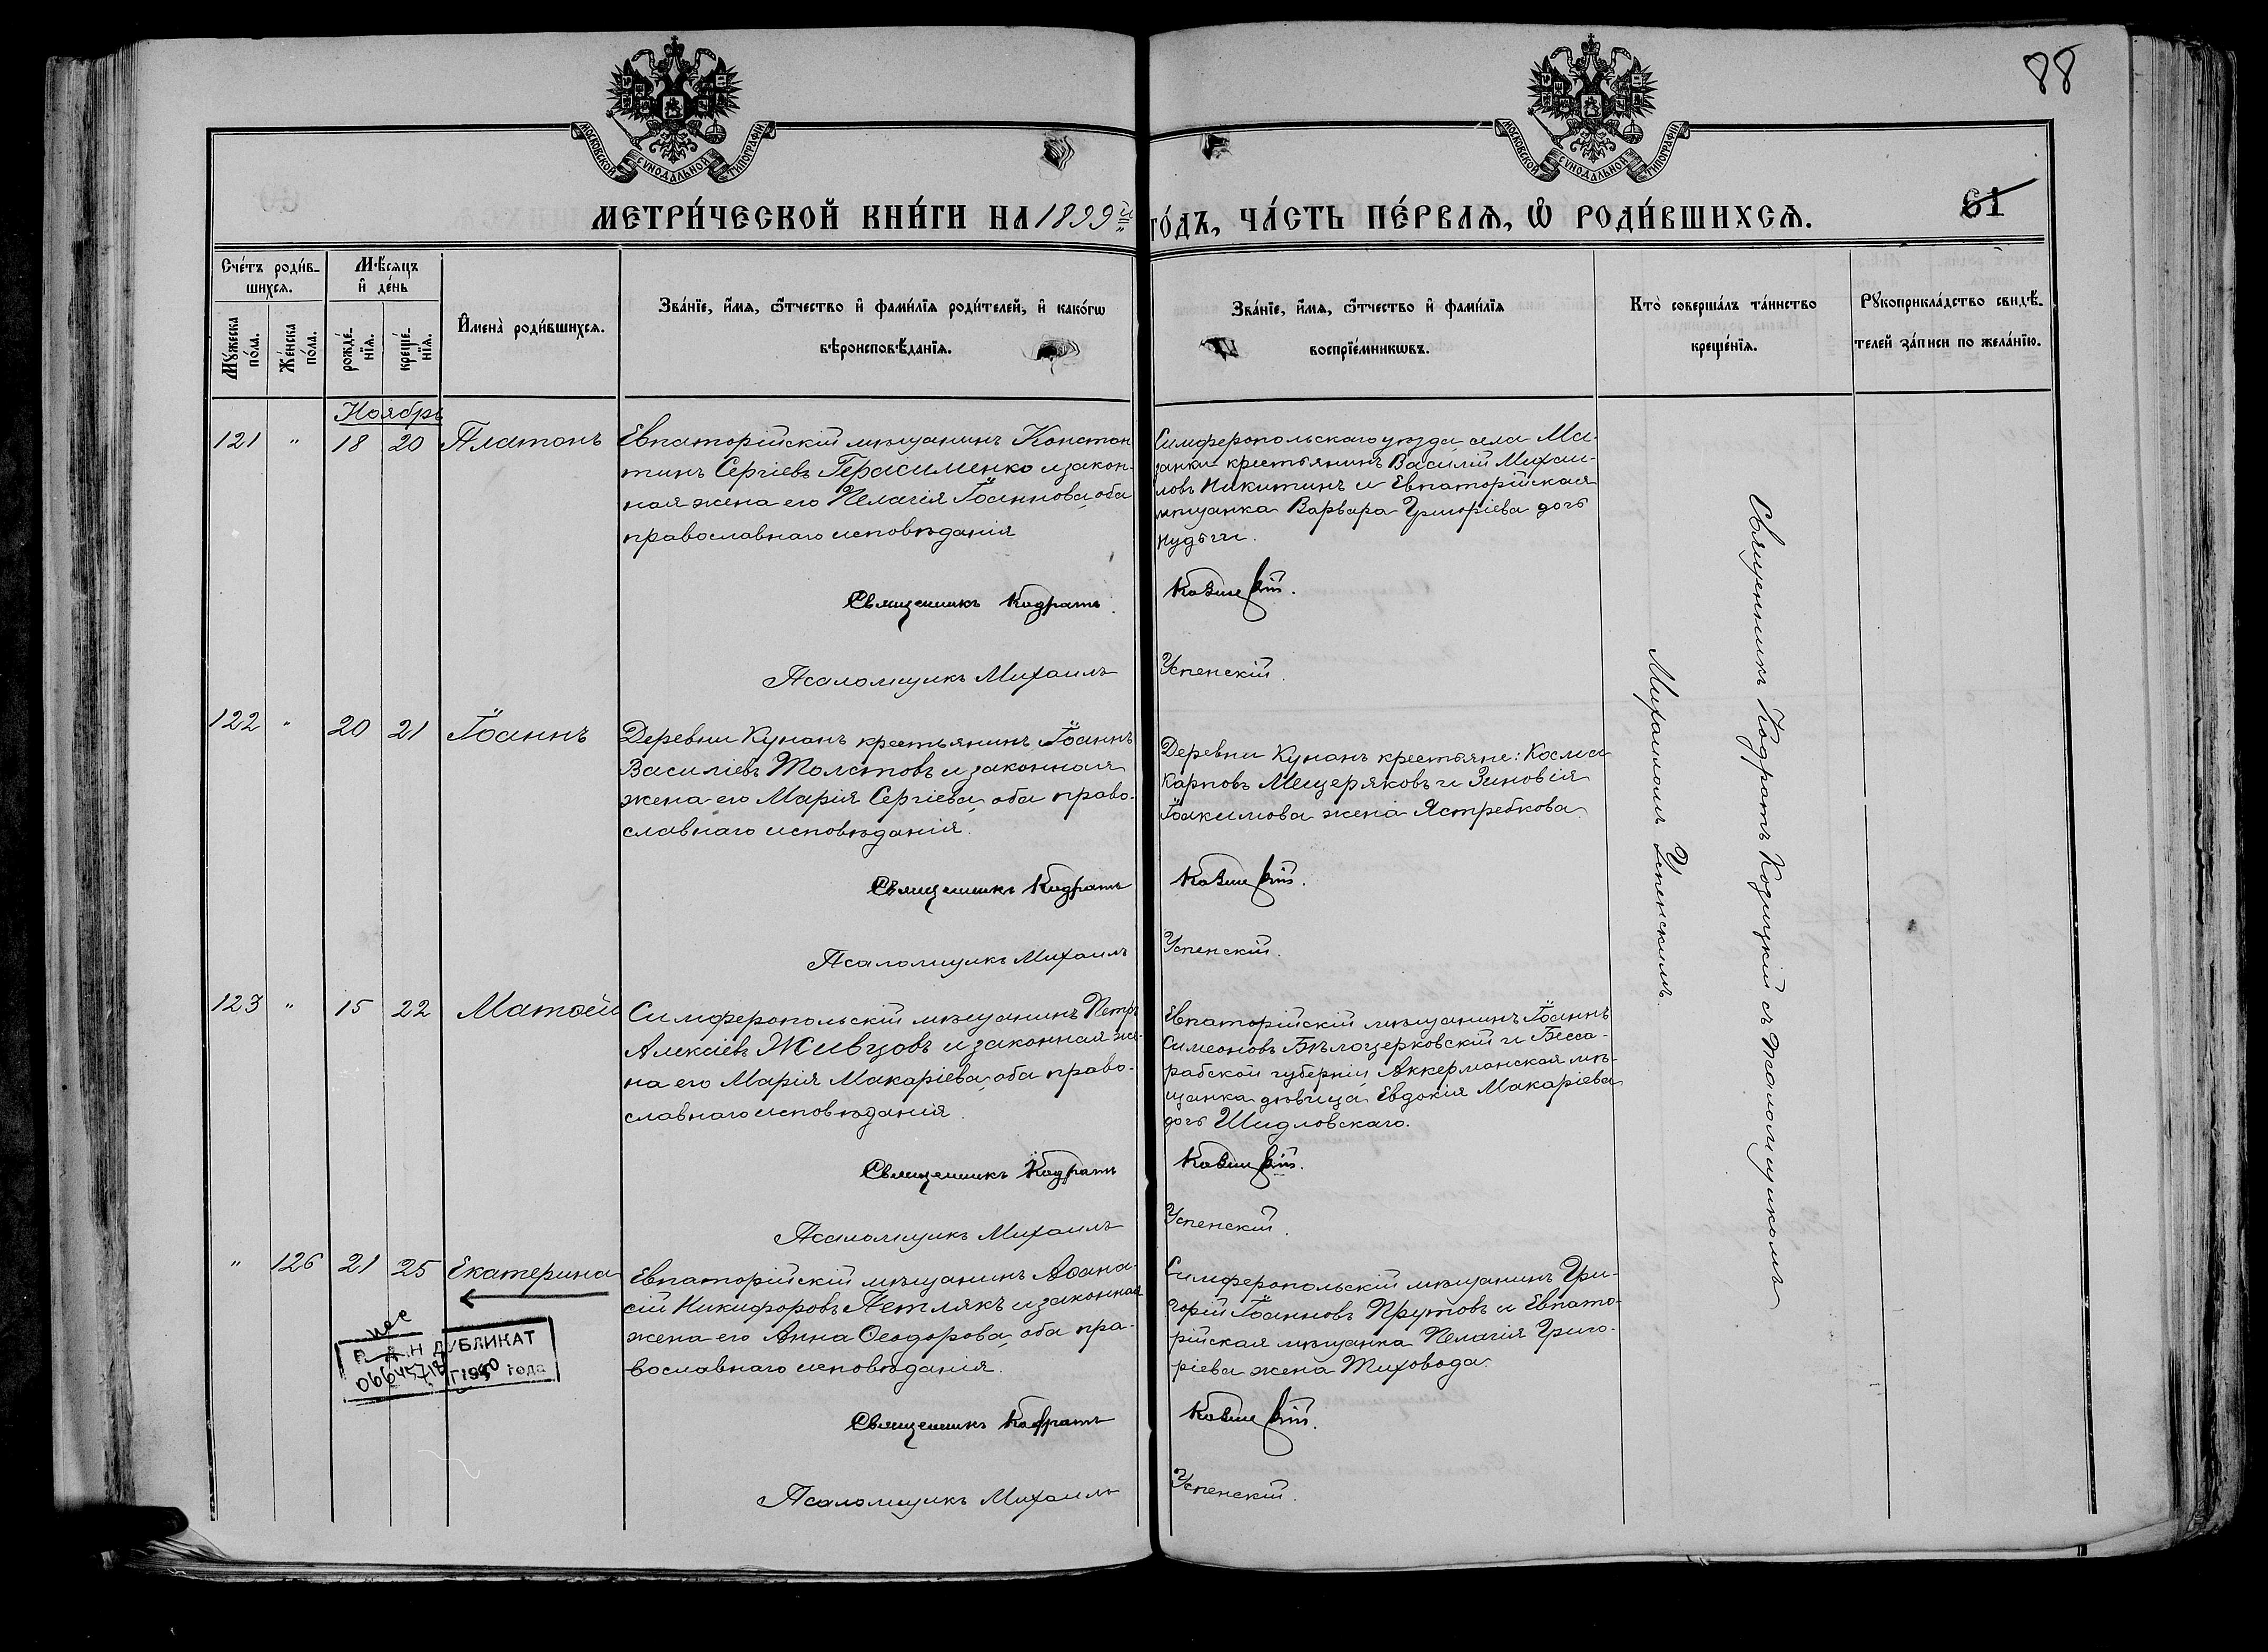 88
МОСКОВСКОЙ СУНОДАЛЬНОЙ ТИПОГРАФІИ
МОСКОВСКОЙ СУНОДАЛЬНОЙ ТИПОГРАФІИ
МЕТРИ́ЧЕСКОЙ КНИ́ГИ НА 1899й
ГО́ДЪ, ЧА́СТЬ ПЕ́РВАѦ, Ѡ҆ РОДИ́ВШИХСѦ.
61
Сче́тъ роди́в-
шихсѧ.
Мѣ́сѧцъ
и҆ де́нь
Мꙋ́жеска
по́ла.
Же́нска
по́ла.
рожде́-
нїѧ.
креще́-
нїѧ.
И҆мена̀ роди́вшихсѧ.
Зва́нїе, и҆́мѧ, ѻ҆́тчество и҆ фами́лїѧ роди́телей, и҆ како́гѡ
вѣроисповѣ́данїѧ.
Зва́нїе, и҆́мѧ, ѻ҆́тчество и҆ фами́лїѧ
воспрїе́мникѡвъ.
Кто̀ соверша́лъ та́инство
креще́нїѧ.
Рꙋкоприкла́дство свидѣ́-
телей за́писи по жела́нїю.
Ноябрь
121 " 18 20 Платонъ
Евпаторійскій мѣщанинъ Констан
тинъ Сергіевъ Герасименко и закон-
ная жена его Пелагія Іоаннова, оба
православнаго исповѣданія
Священникъ Кодратъ
Псаломщикъ Михаилъ
Симферопольскаго уѣзда села Ма-
занки крестьянинъ Василій Михаи-
ловъ Никитинъ и Евпаторійская
мѣщанка Варвара Григоріева дочь
Нудьги.
Успенскій.
122 " 20 21 Іоаннъ
Деревни Кунанъ крестьянинъ Іоаннъ
Василіевъ Толстовъ и законная
жена его Марія Сергіева, оба право-
славнаго исповѣданія.
Священникъ Кодратъ
Псаломщикъ Михаилъ
Деревни Кунанъ крестьяне: Косма
Карповъ Мещеряковъ и Зиновія
Іоакимова жена Ястребкова.
Успенскій.
123 " 15 22 Матѳей
Симферопольскій мѣщанинъ Петръ
Алексіевъ Живцовъ и законная же-
на его Марія Макаріева, оба право-
славнаго исповѣданія.
Священникъ Кодратъ
Псаломщикъ Михаилъ
Евпаторійскій мѣщанинъ Іоаннъ
Симеоновъ Бѣлоцерковскій и Бесса-
рабской губерніи Аккерманская мѣ-
щанка дѣвица Евдокія Макаріева
дочь Шидловскаго.
Успенскій.
" 126 21 25 Екатерина
Евпаторійскій мѣщанинъ Аѳана-
сій Никифоровъ Петлякъ и законная
жена его Анна Ѳеодорова, оба пра-
вославнаго исповѣданія.
Священникъ Кодратъ
Псаломщикъ Михаилъ
Симферопольскій мѣщанинъ Гри-
горій Іоанновъ Прутовъ и Евпато-
рійская мѣщанка Пелагія Григо-
ріева жена Тиховода.
Успенскій.
Священникъ Кодратъ Козицкій съ псаломщикомъ
Михаиломъ Успенскимъ.
ДУБЛИКАТ
года